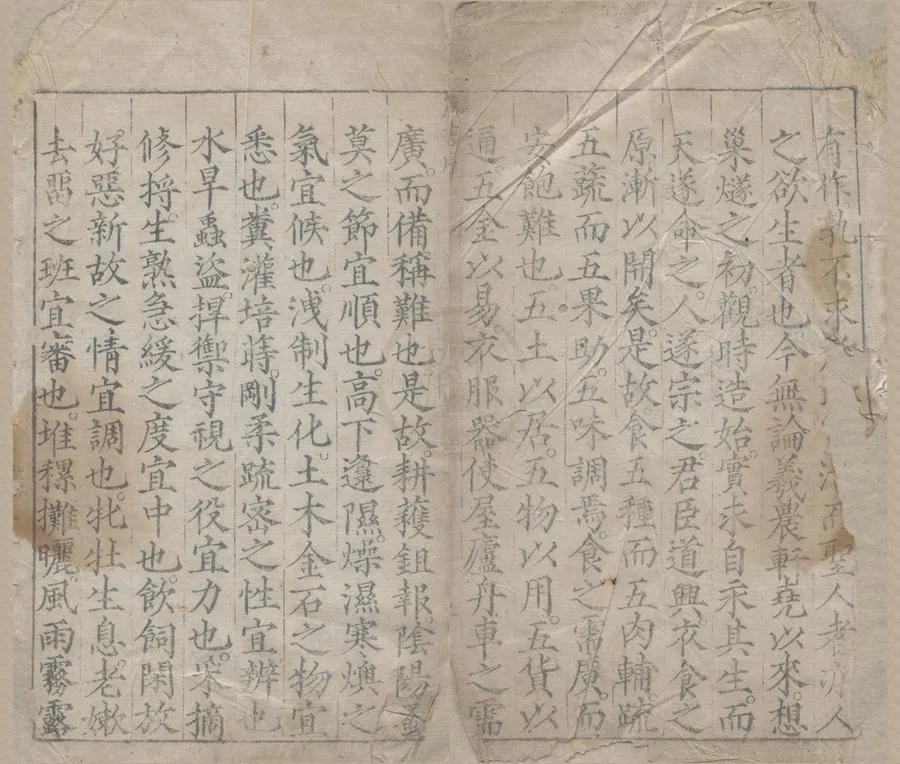 有作孰不求 而聖人者亦人
之欲生者也今無論羲農軒堯以來。想
巢燧之初。觀時造始。實求自汞其生。而
天遂命之。人遂宗之。君臣道興。衣食之
原。漸以開矣。是故。食五種而五肉輔。疏
五蔬而五果助。五味調焉。食之需廣。而
安飽難也。五土以居。五物以用。五貨以
通。五金以易。衣服器使屋廬舟車之需
廣。而備稱難也。是故。耕穫鉏報。陰陽蚤
莫之節宜順也。高下邍隰。燥濕寒燠之
氣宜候也。洩制生化。土木金石之物宜
悉也。糞灌培蒔。剛柔疏密之性宜辨也
水旱蟲盜。捍禦守視之役宜力也。采摘
修捋。生熟急緩之度宜中也。飲飼閑放
好惡新故之情宜調也。牝牡生息。老嫰
去畱之班宜審也。堆穋攤曬。風雨霧露